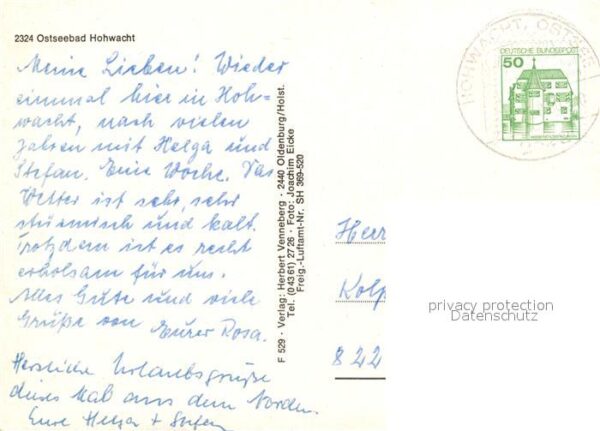 2324 Ostseebad Hohwacht
Meine Lieben! Wieder
einmal hier in Hoh-
wacht, nach vielen
Jahren mit Helga und
Stefan. Eine Woche. Das
Wetter ist sehr, sehr
stürmisch und kalt.
Trotzdem ist es recht
erholsam für uns.
Alles Gute und viele
Grüße von Eurer Rosa.
Herzliche Urlaubsgrüße
dieses Mal aus dem Norden.
Eure Helga + Stefan
F 529 · Verlag: Herbert Venneberg · 2440 Oldenburg/Holst.
Tel. (0 43 61) 27 26 · Foto: Joachim Eicke
Freig.-Luftamt-Nr. SH 369-520
HOHWACHT, OSTSEE
DEUTSCHE BUNDESPOST
50
Herr
Kolp
822
privacy protection
Datenschutz